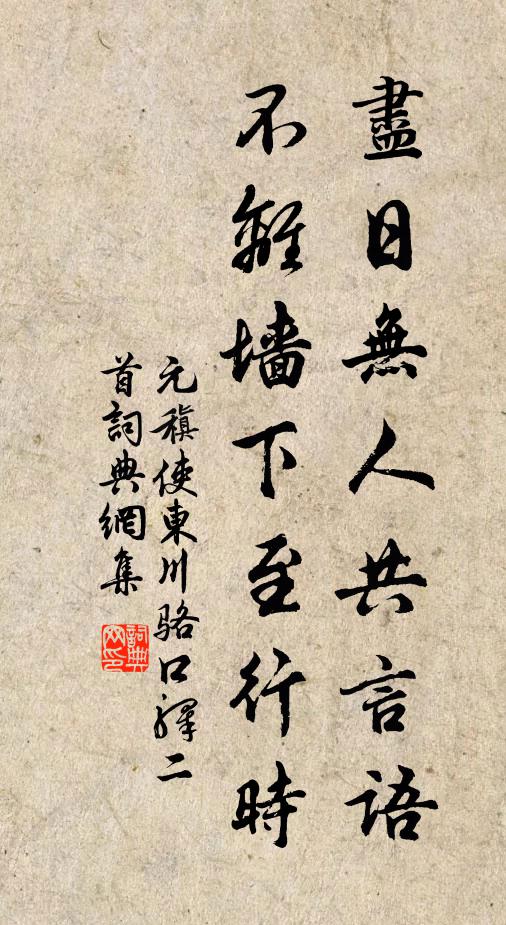 盡日無人共言語
不離墻下至行時
元稹使東川駱口驛二
首詞典網集
詞典
网印